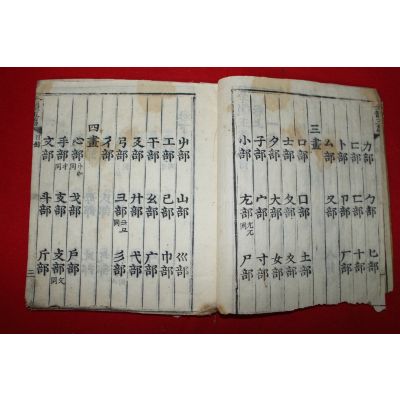 力部 勹部 匕部
匚部 匸部 十部
卜部 卩部 厂部
厶部 又部
三畫
口部 囗部 土部
士部 夂部 夊部
夕部 大部 女部
子部 宀部 寸部
小部 尢部 尸部
屮部 山部 巛部
工部 己部 巾部
干部 幺部 广部
廴部 廾部 弋部
弓部 彐部 彡部
彳部
四畫
心部 戈部 戶部
手部扌同 支部 攴部攵同
文部 斗部 斤部